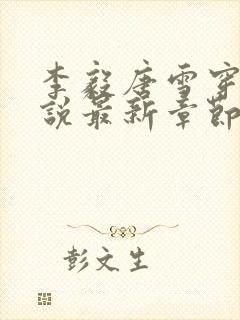 李毅唐雪穿
说最新章节
彭文生